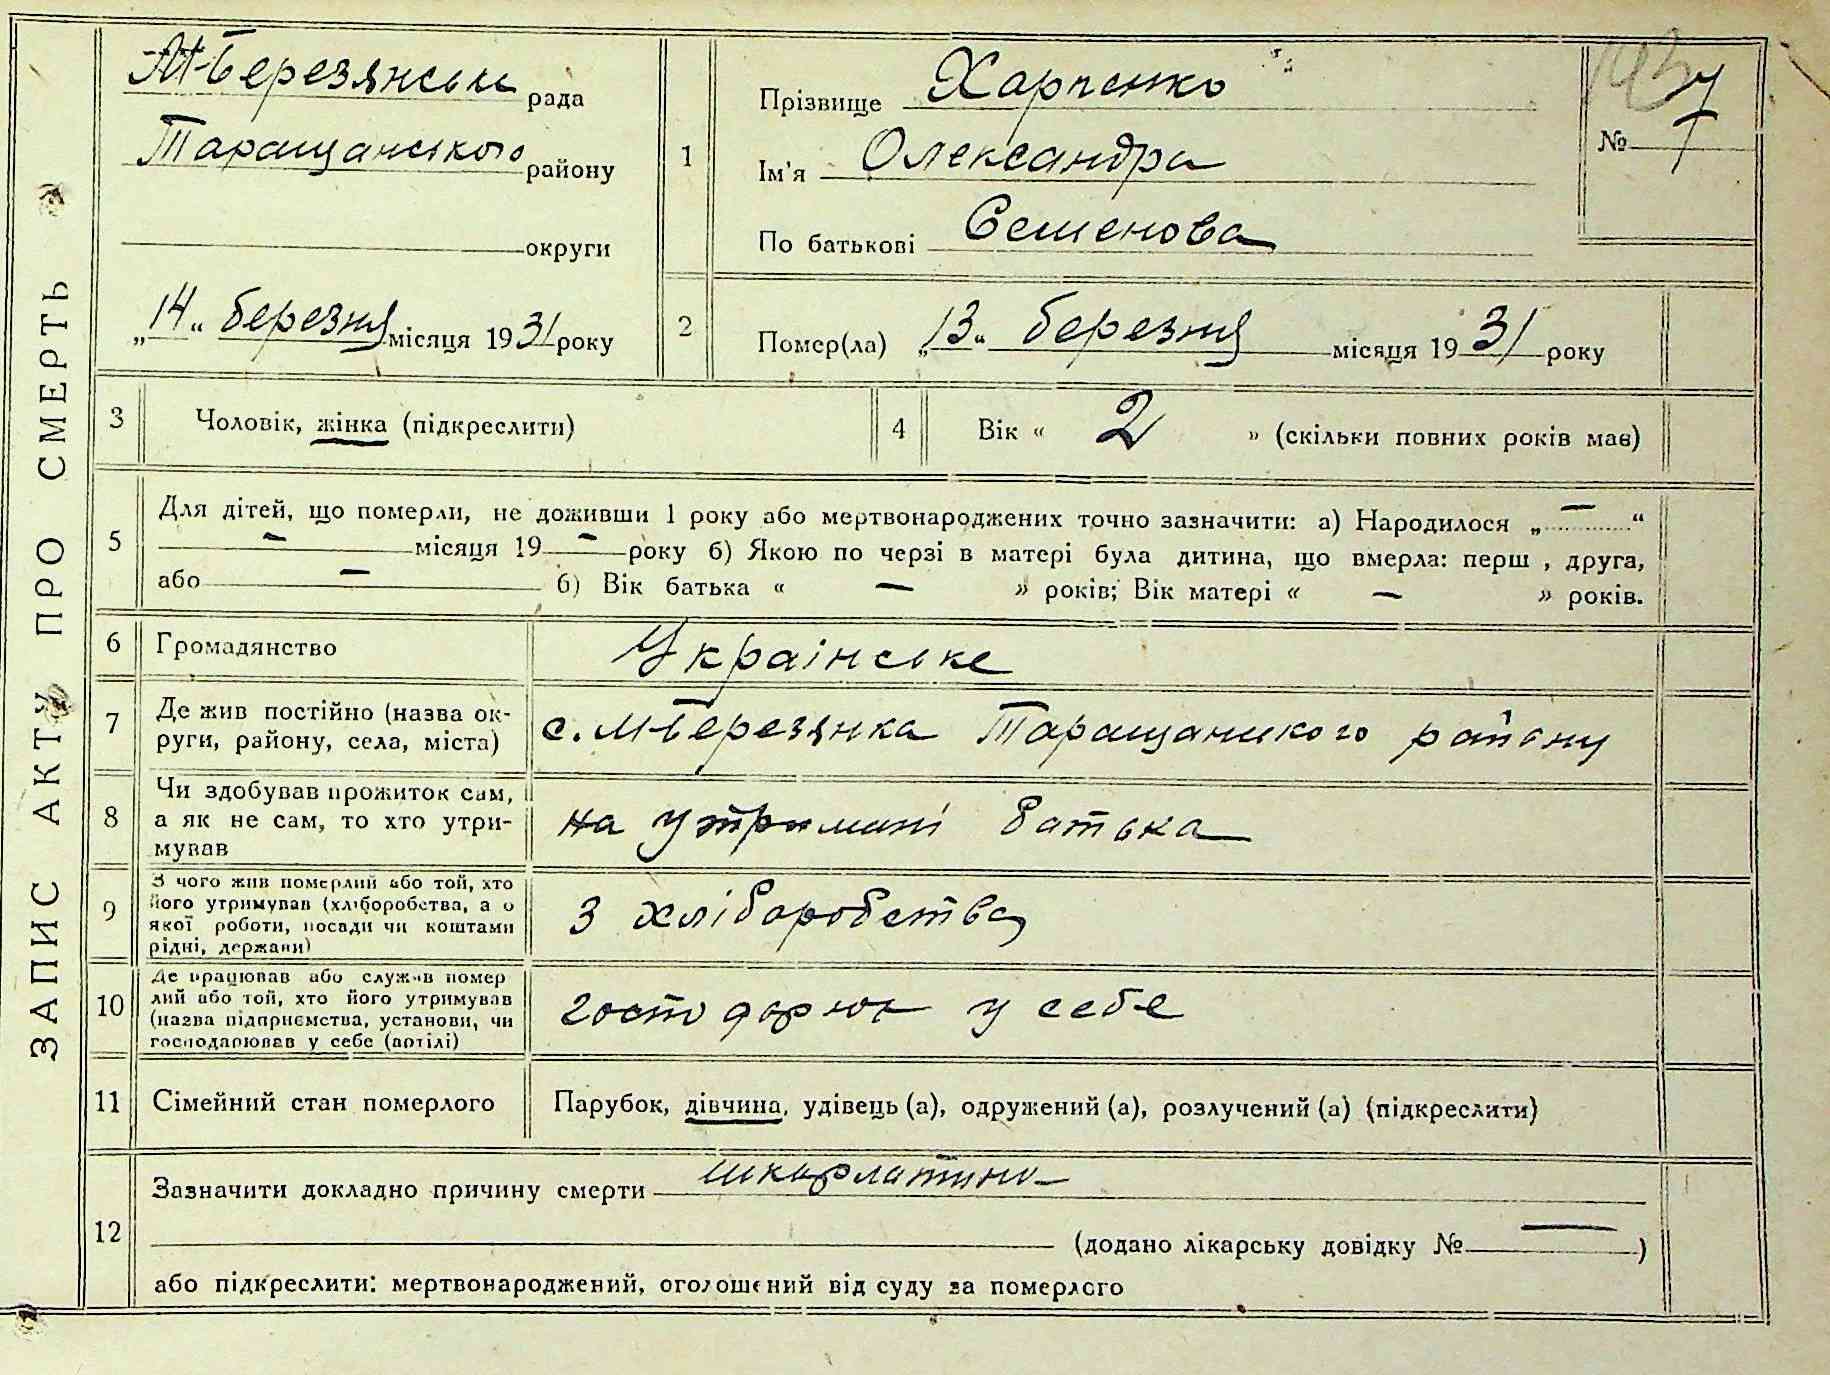 ЗАПИС АКТУ ПРО СМЕРТЬ
М-Березянська рада
Таращанського району
округи
„14“ березня місяця 1931 року
1
Прізвище Харченко
Ім'я Олександра
По батькові Семенова
№ 7
2
Помер(ла) „13“ березня місяця 1931 року
3 Чоловік, жінка (підкреслити)
4 Вік « 2 » (скільки повних років мав)
5 Для дітей, що померли, не доживши 1 року або мертвонароджених точно зазначити: а) Народилося „ — “
— місяця 19 — року б) Якою по черзі в матері була дитина, що вмерла: перш , друга,
або — б) Вік батька « — » років; Вік матері « — » років.
6 Громадянство Українське
7 Де жив постійно (назва ок-
руги, району, села, міста)
с. М-Березянка Таращанського району
8 Чи здобував прожиток сам,
а як не сам, то хто утри-
мував
на утримані батька
9 З чого жив померлий або той, хто
його утримував (хліборобства, а о
якої роботи, посади чи коштами
рідні, держави)
з хліборобства
10 Де працював або служив помер
лий або той, хто його утримував
(назва підприємства, установи, чи
господарював у себе (вотілі)
господарює у себе
11 Сімейний стан померлого Парубок, дівчина, удівець (а), одружений (а), розлучений (а) (підкреслити)
12 Зазначити докладно причину смерти шкарлатина
(додано лікарську довідку № — )
або підкреслити: мертвонароджений, оголошений від суду за померлого